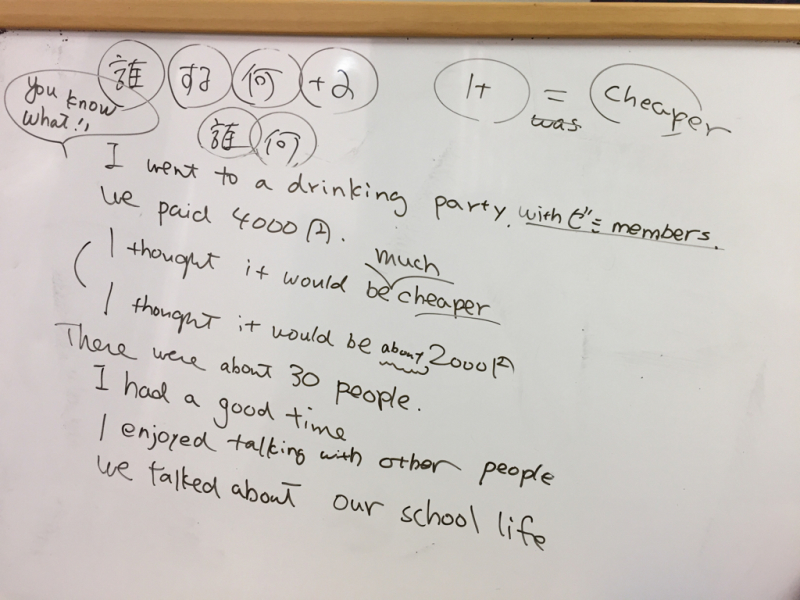 誰 する 何 +α
誰 何
It = cheaper
was
You know what!!
I went to a drinking party. with ゼミ members.
We paid 4000円.
I thought it would be much cheaper
I thought it would be about 2000円
There were about 30 people.
I had a good time
I enjoyed talking with other people
We talked about our school life